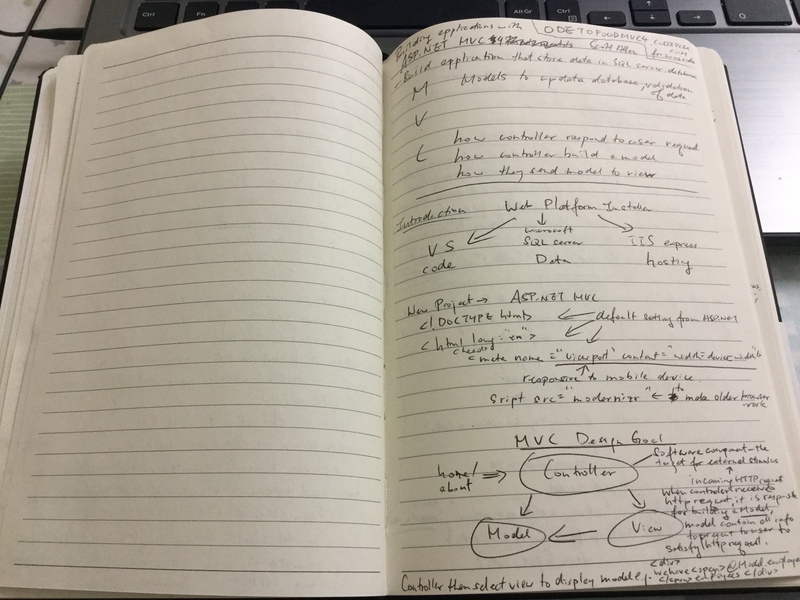 Building applications with
ASP.NET MVC 4 Scott Allen
ODETOFOODMVC4.
Build application that store data in SQL server database
M Models to update database, validation
of data
V
C how controller respond to user request
how controller build a model
how they send model to view
Introduction Web Platform Installer
VS
code
microsoft
SQL server
Data
IIS express
hosting
New Project → ASP.NET MVC
<!DOCTYPE html> ← default setting from ASP.NET
<html lang="en">
<head>
<meta name="viewport" content="width=device-width"
responsive to mobile device
sript src="modernizr" ← to make older browser
work
MVC Design Goal
home/
about
Controller
Model
View
Software component - the
target for external stimulus
↑
incoming HTTP request
when controller receives
http request, it is responsible
for building a Model,
model contain all info
to present to user to
satisfy http request.
Controller then select view to display model e.g.
<div>
we have <span> @Model.employee
</span> employees </div>
Ctrl
Fn
Alt Gr
Ctrl